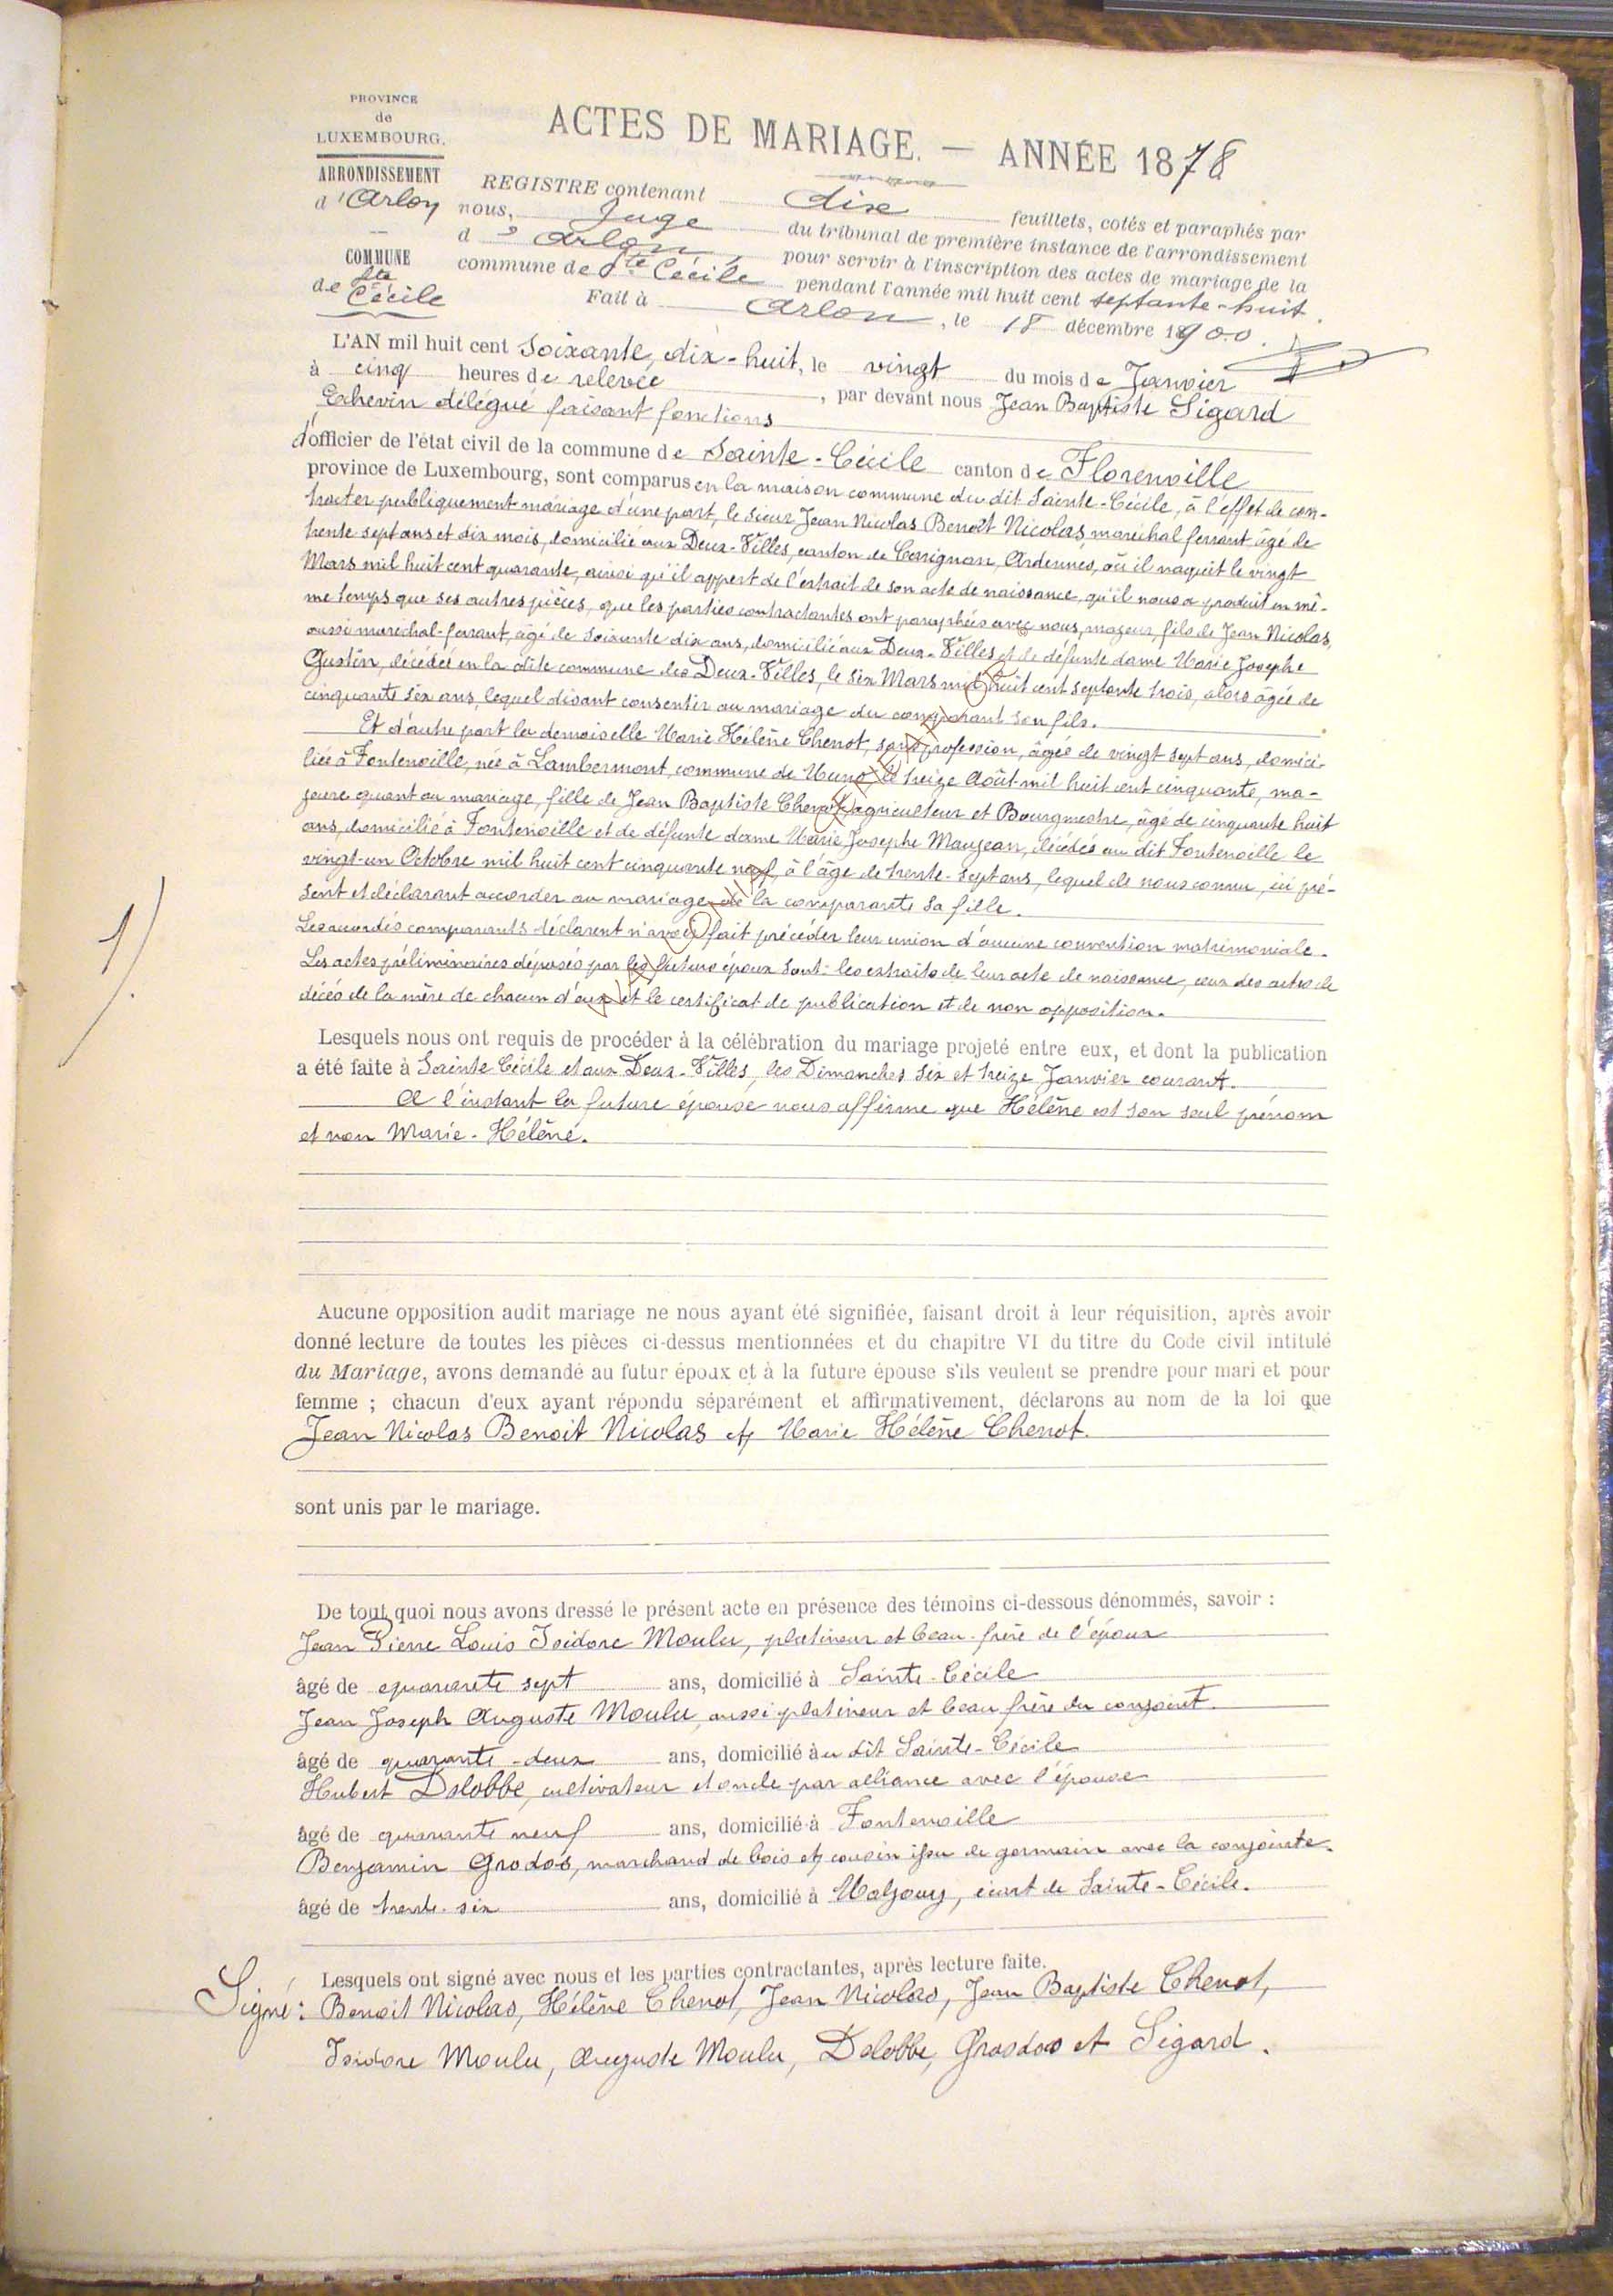 PROVINCE
de
LUXEMBOURG.
ARRONDISSEMENT
d'Arlon
COMMUNE
de Ste
Cécile
ACTES DE MARIAGE. — ANNÉE 1878
REGISTRE contenant dix feuillets, cotés et paraphés par
nous, Juge du tribunal de première instance de l'arrondissement
d'Arlon, pour servir à l'inscription des actes de mariage de la
commune de Ste Cécile pendant l'année mil huit cent septante-huit.
Fait à Arlon, le 18 décembre 1900.
L'AN mil huit cent Soixante, dix-huit, le vingt du mois de Janvier
à cinq heures de relevée, par devant nous Jean Baptiste Sigard
Echevin délégué faisant fonctions
d'officier de l'état civil de la commune de Sainte-Cécile canton de Florenville
province de Luxembourg, sont comparus en la maison commune du dit Sainte-Cécile, à l'effet de con-
tracter publiquement mariage d'une part, le sieur Jean Nicolas Benoit Nicolas, maréchal ferrant âgé de
trente sept ans et dix mois, domicilié aux Deux-Villes, canton de Carignan, Ardennes, où il naquit le vingt
Mars mil huit cent quarante, ainsi qu'il appert de l'extrait de son acte de naissance, qu'il nous a produit en mê-
me temps que ses autres pièces, que les parties contractantes ont paraphées avec nous, majeur, fils de Jean Nicolas,
aussi maréchal-ferrant, âgé de soixante dix ans, domicilié aux Deux-Villes et de défunte dame Marie Josephe
Gustin, décédée en la dite commune des Deux-Villes, le six Mars mil huit cent septante trois, alors âgée de
cinquante six ans, lequel disant consentir au mariage du comparant son fils.
Et d'autre part la demoiselle Marie Hélène Chenot, sans profession, âgée de vingt sept ans, domici-
liée à Fontenoille, née à Lambermont, commune de Muno, le treize Août mil huit cent cinquante, ma-
jeure quant au mariage, fille de Jean Baptiste Chenot, agriculteur et Bourgmestre, âgé de cinquante huit
ans, domicilié à Fontenoille et de défunte dame Marie Josephe Maujean, décédée au dit Fontenoille le
vingt-un Octobre mil huit cent cinquante neuf, à l'âge de trente-sept ans, lequel de nous connu, ici pré-
sent et déclarant accorder au mariage de la comparante sa fille.
Les accordés comparants déclarent n'avoir fait précéder leur union d'aucune convention matrimoniale.
Les actes préliminaires déposés par les futurs époux sont: les extraits de leur acte de naissance, ceux des actes de
décès de la mère de chacun d'eux et le certificat de publication et de non opposition.
1/
Lesquels nous ont requis de procéder à la célébration du mariage projeté entre eux, et dont la publication
a été faite à Sainte Cécile et aux Deux-Villes, les Dimanches six et treize Janvier courant.
A l'instant la future épouse nous affirme que Hélène est son seul prénom
et non Marie-Hélène.
Aucune opposition audit mariage ne nous ayant été signifiée, faisant droit à leur réquisition, après avoir
donné lecture de toutes les pièces ci-dessus mentionnées et du chapitre VI du titre du Code civil intitulé
du Mariage, avons demandé au futur époux et à la future épouse s'ils veulent se prendre pour mari et pour
femme ; chacun d'eux ayant répondu séparément et affirmativement, déclarons au nom de la loi que
Jean Nicolas Benoit Nicolas et Marie Hélène Chenot.
sont unis par le mariage.
De tout quoi nous avons dressé le présent acte en présence des témoins ci-dessous dénommés, savoir :
Jean Pierre Louis Isidore Moulu, platineur et beau-frère de l'époux
âgé de quarante sept ans, domicilié à Sainte-Cécile
Jean Joseph Auguste Moulu, aussi platineur et beau frère du conjoint.
âgé de quarante-deux ans, domicilié au dit Sainte-Cécile
Hubert Dalobbe, cultivateur et oncle par alliance avec l'épouse
âgé de quarante neuf ans, domicilié à Fontenoille
Benjamin Grodos, marchand de bois et cousin issu de germain avec la conjointe.
âgé de trente-six ans, domicilié à Waljoug, écart de Sainte-Cécile.
Lesquels ont signé avec nous et les parties contractantes, après lecture faite.
Signé: Benoit Nicolas, Hélène Chenot, Jean Nicolas, Jean Baptiste Chenot,
Isidore Moulu, Auguste Moulu, Dalobbe, Grosdos et Sigard.